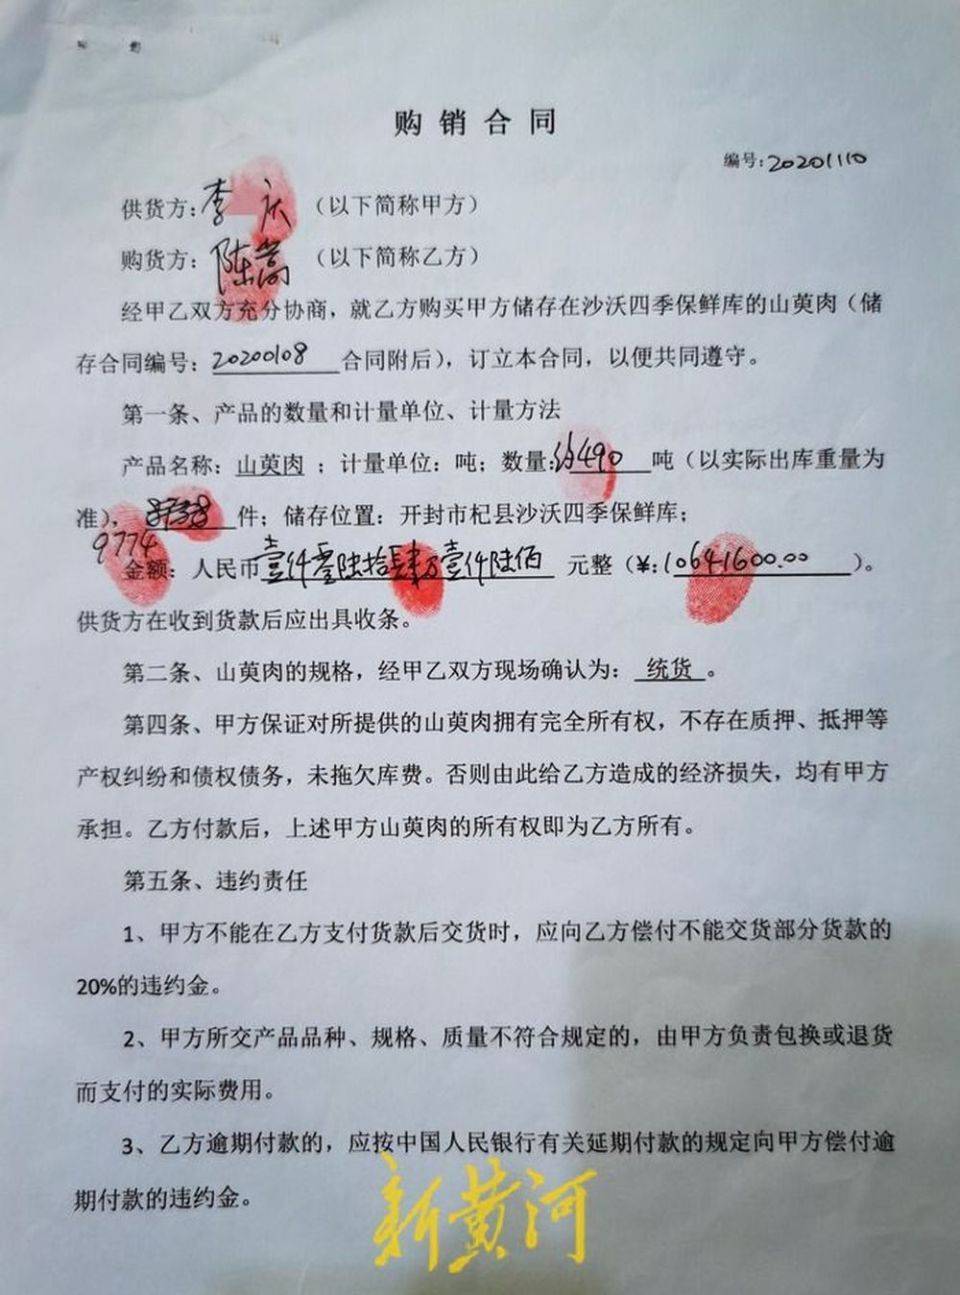 购销合同
编号:20201110
供货方:李庆（以下简称甲方）
购货方:陈嵩（以下简称乙方）
经甲乙双方充分协商，就乙方购买甲方储存在沙沃四季保鲜库的山萸肉（储
存合同编号:20200108合同附后），订立本合同，以便共同遵守。
第一条、产品的数量和计量单位、计量方法
产品名称:山萸肉；计量单位:吨；数量:约490吨（以实际出库重量为
准），8738件；储存位置:开封市杞县沙沃四季保鲜库；
9774
金额:人民币壹仟零陆拾肆万壹仟陆佰元整（¥:10641600.00）。
供货方在收到货款后应出具收条。
第二条、山萸肉的规格，经甲乙双方现场确认为:统货。
第四条、甲方保证对所提供的山萸肉拥有完全所有权，不存在质押、抵押等
产权纠纷和债权债务，未拖欠库费。否则由此给乙方造成的经济损失，均有甲方
承担。乙方付款后，上述甲方山萸肉的所有权即为乙方所有。
第五条、违约责任
1、甲方不能在乙方支付货款后交货时，应向乙方偿付不能交货部分货款的
20%的违约金。
2、甲方所交产品品种、规格、质量不符合规定的，由甲方负责包换或退货
而支付的实际费用。
3、乙方逾期付款的，应按中国人民银行有关延期付款的规定向甲方偿付逾
期付款的违约金。
新黄河